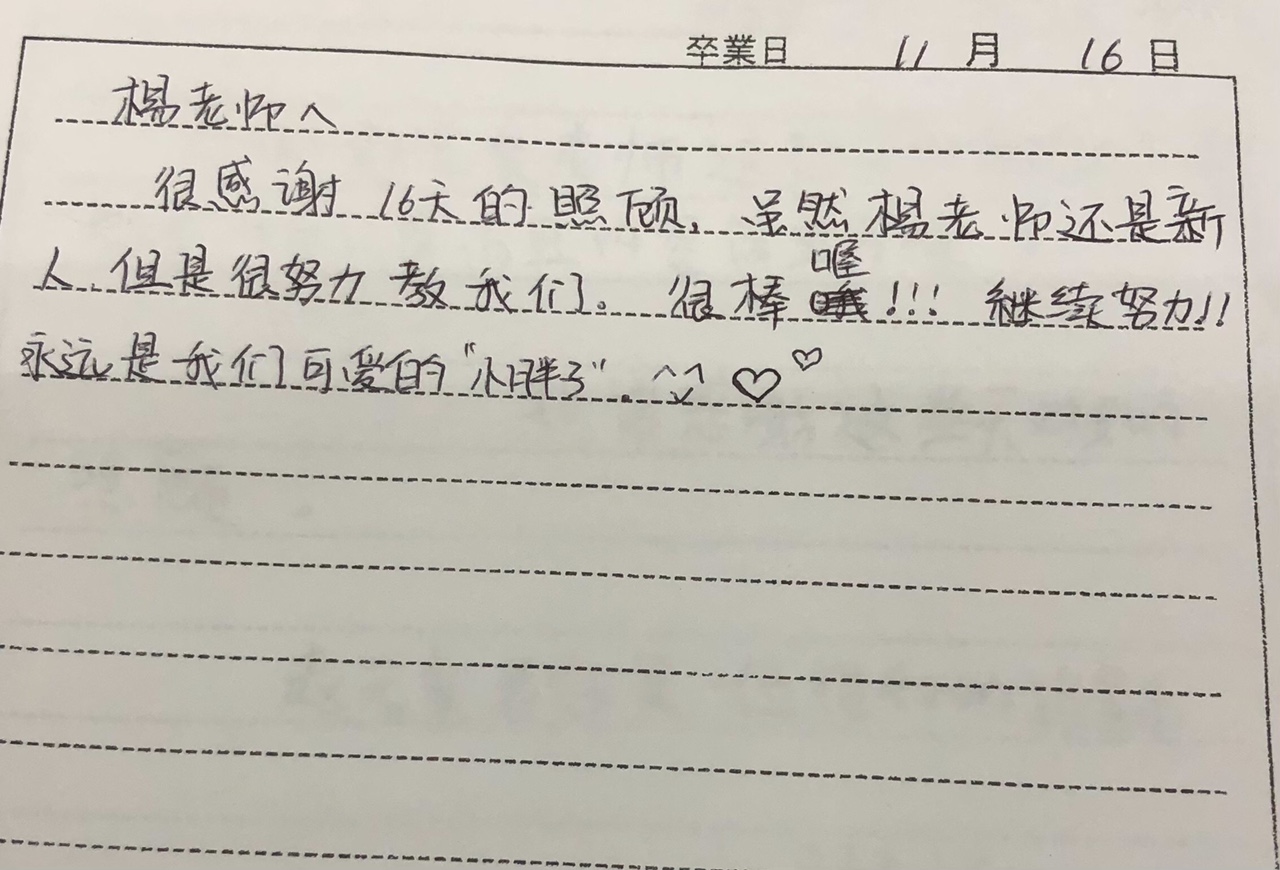 卒業日 11月 16日
楊老师へ
很感谢16天的照顾,虽然楊老师还是新
人,但是很努力教我们。很棒喔!!!继续努力!!
永远是我们可爱的"小胖子".^^